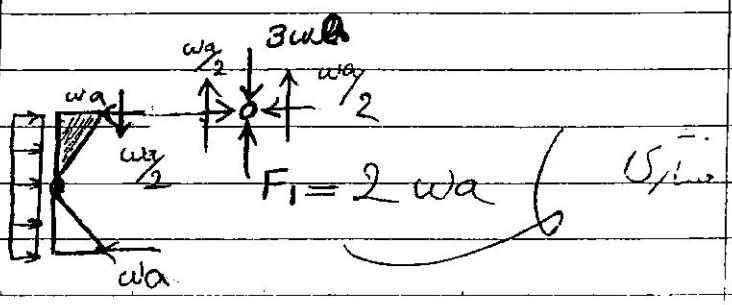 3wa
wa/2
wa/2
wa
wa/2
F₁ = 2 wa
wa